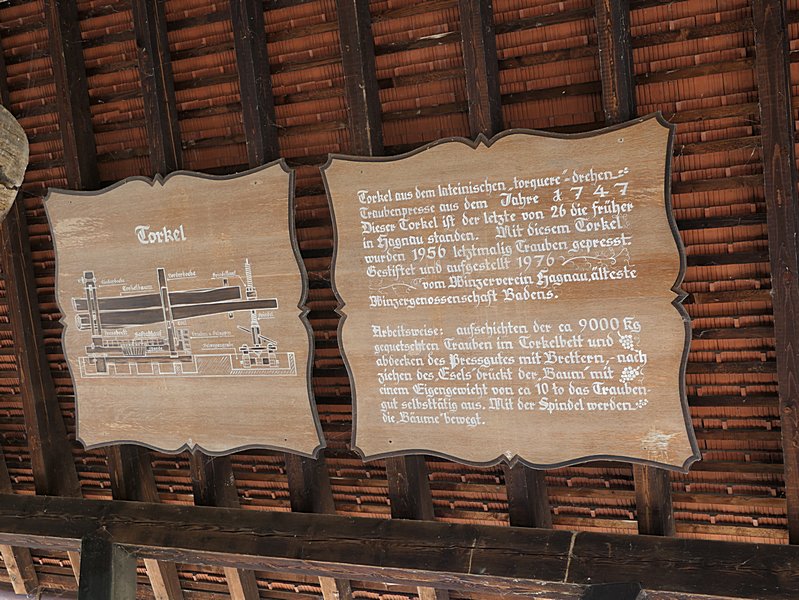 Torkel
Hinterbacke
Vorderbacke
Torkelbaum
Spindel
Torkel aus dem lateinischen „torquere“-drehen
Traubenpresse aus dem Jahre 1747
Dieser Torkel ist der letzte von 26 die früher
in Hagnau standen. Mit diesem Torkel
wurden 1956 letztmalig Trauben gepresst
Gestiftet und aufgestellt 1976
vom Winzerverein Hagnau, älteste
Winzergenossenschaft Badens.
Arbeitsweise: aufschichten der ca 9000 Kg
gequetschten Trauben im Torkelbett und
abdecken des Pressgutes mit Brettern,- nach
ziehen des „Esels“ drückt der „Baum“ mit
einem Eigengewicht von ca 10 to das Trauben-
gut selbsttätig aus. Mit der Spindel werden
die Bäume bewegt.